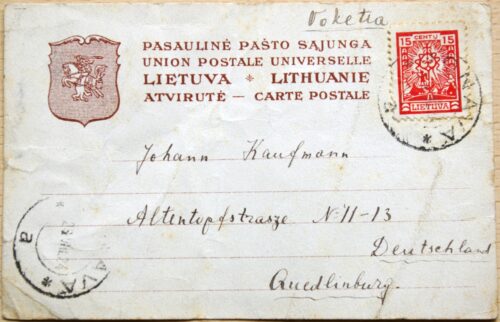 Voketia
PASAULINĖ PAŠTO SĄJUNGA
UNION POSTALE UNIVERSELLE
LIETUVA * LITHUANIE
ATVIRUTĖ — CARTE POSTALE
15 CENTŲ 15
LIETUVA
Johann Kaufmann
Altentopfstrasze № 11-13
Deutschland
Quedlinburg.
a